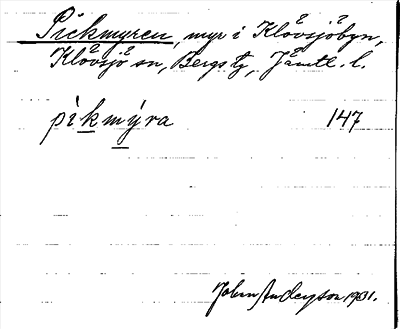 Pickmyren, myr i Klövsjöbyn,
Klövsjö sn, Bergs tg, Jämtl. l.
pikmýra 147
John Anderson 1931.